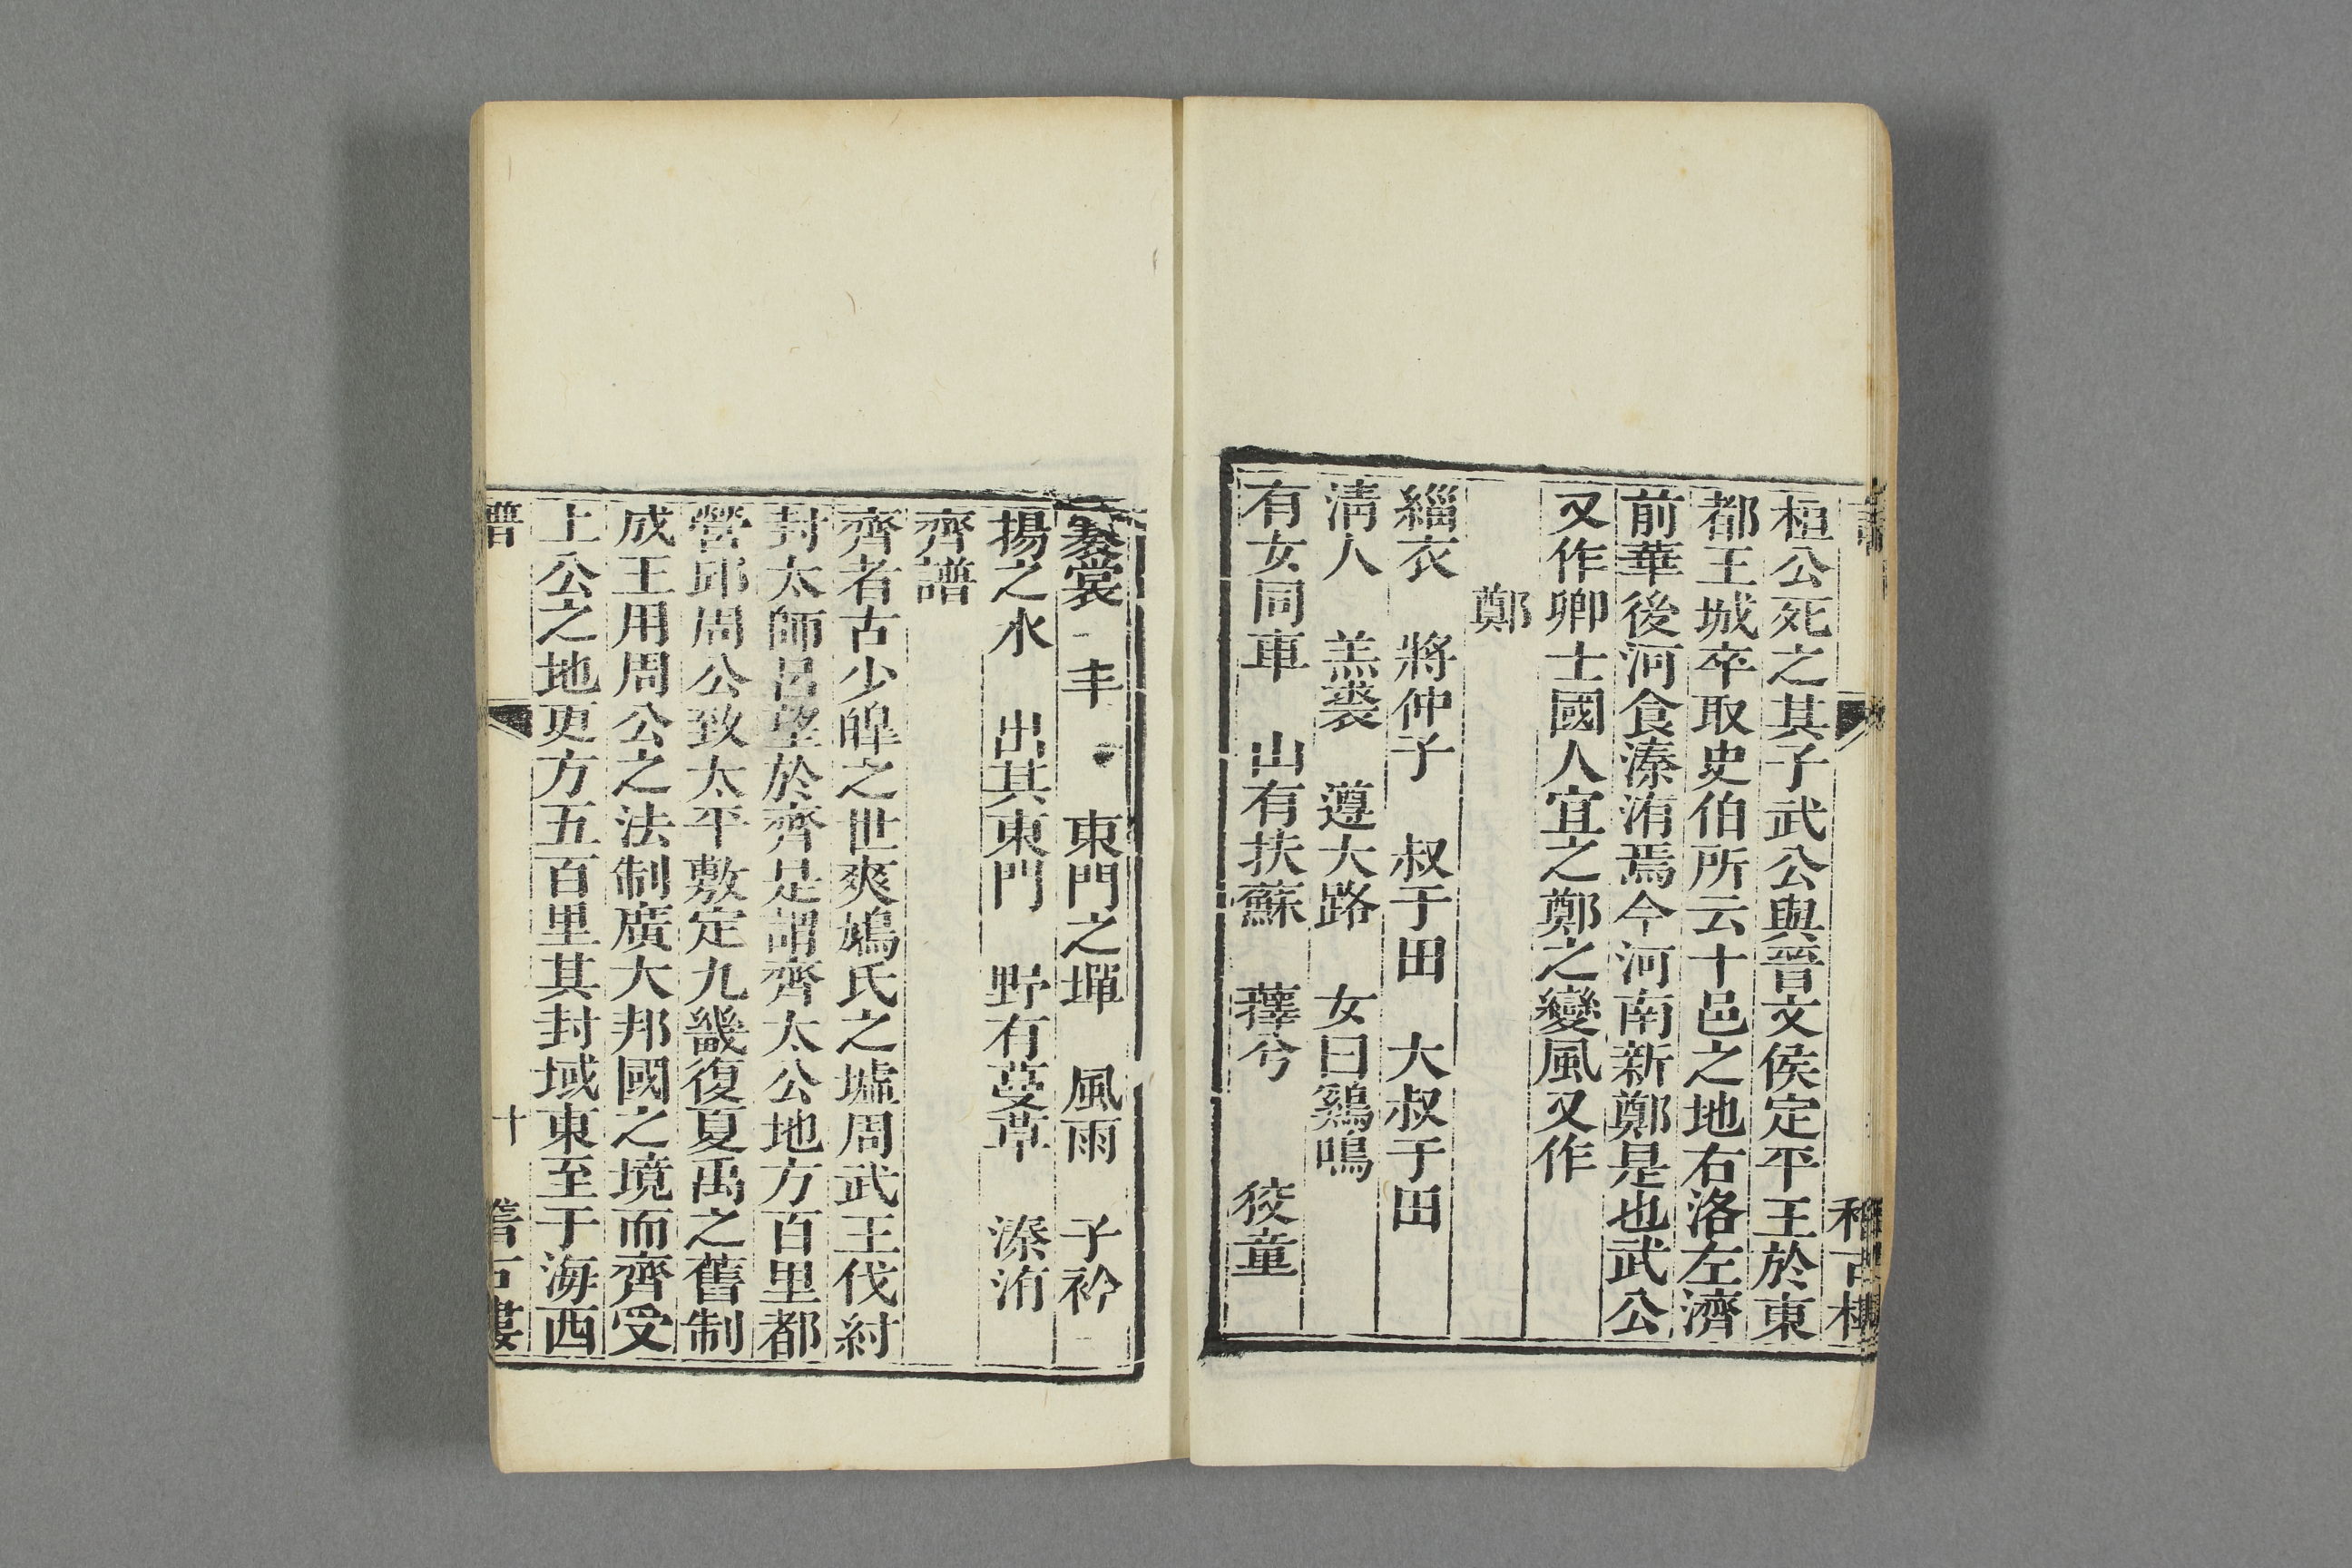 桓公死之其子武公與晉文侯定平王於東
都王城卒取史伯所云十邑之地右洛左濟
前華後河食溱洧焉今河南新鄭是也武公
又作卿士國人宜之鄭之變風又作
鄭
緇衣　將仲子　叔于田　大叔于田
清人　羔裘　遵大路　女曰鷄鳴
有女同車　山有扶蘇　蘀兮　狡童
褰裳　丰　東門之墠　風雨　子衿
揚之水　出其東門　野有蔓草　溱洧
齊譜
齊者古少皥之世爽鳩氏之墟周武王伐紂
封太師呂望於齊是謂齊太公地方百里都
營邱周公致太平敷定九畿復夏禹之舊制
成王用周公之法制廣大邦國之境而齊受
上公之地更方五百里其封域東至于海西
譜
十